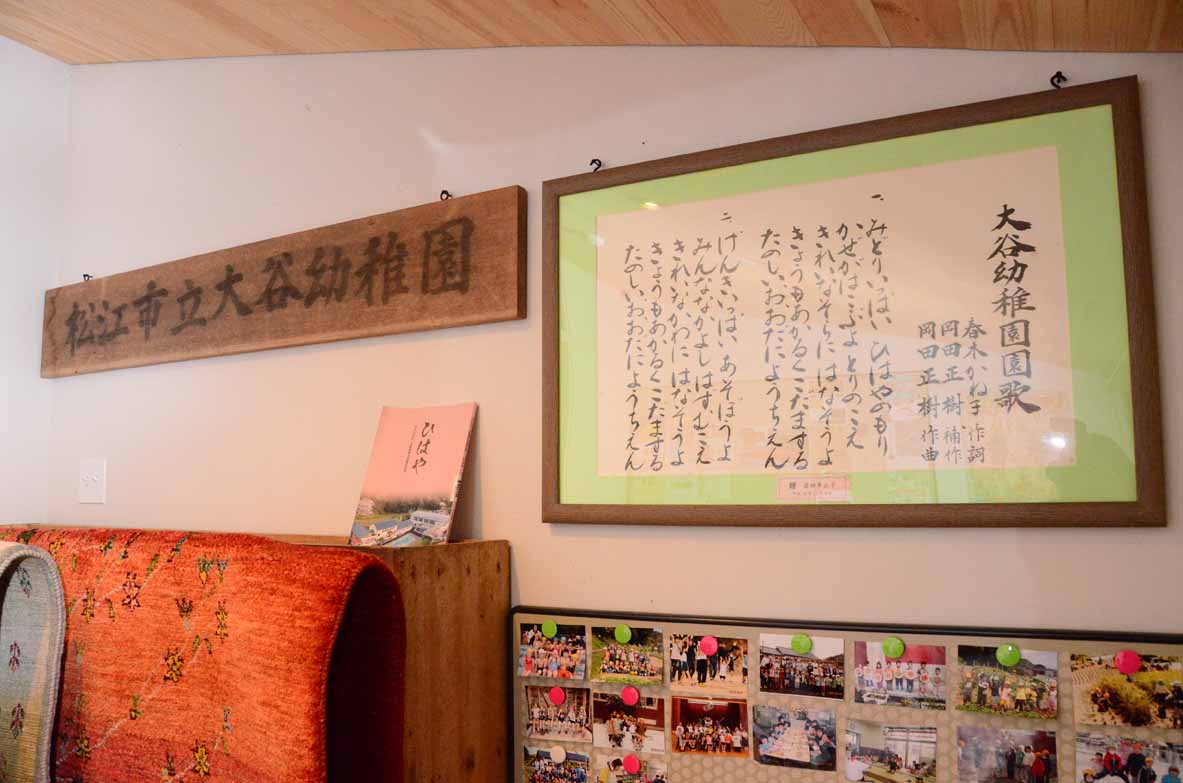 松江市立大谷幼稚園
大谷幼稚園園歌
春木かね子作詞
岡田正樹補作
岡田正樹作曲
一、みどりいっぱい ひはやのもり
かぜがはこぶよ とりのこえ
きれいなそらに はなそうよ
きょうもあかるくこだまする
たのしいおおたにようちえん
二、げんきいっぱい あそぼうよ
みんなながよし はずむこえ
きれいなかわに はなそうよ
きょうもあかるくこだまする
たのしいおおたにようちえん
ひはや